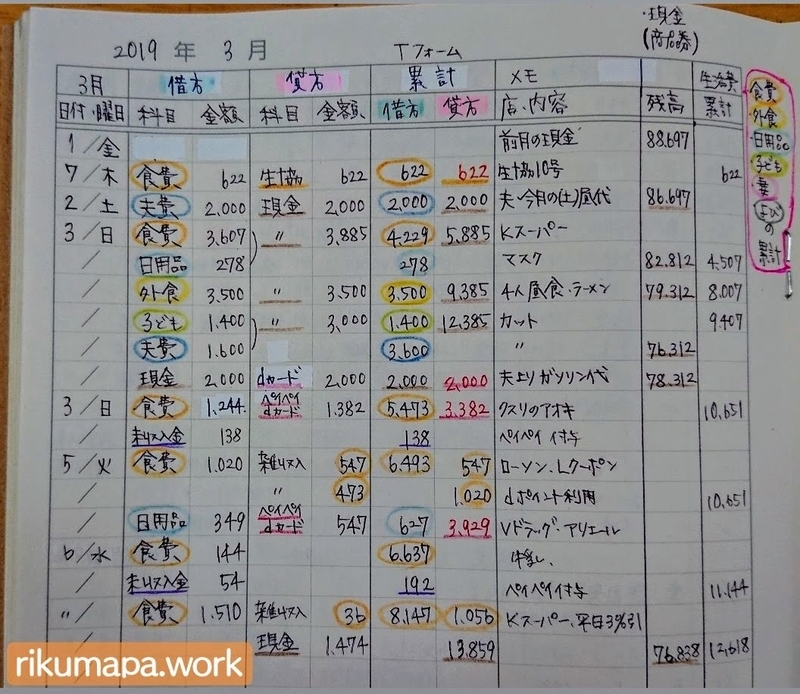 ・現金
(商品券)
2019 年 3 月 Tフォーム
3月 借方 貸方 累計 メモ 生活費
日付・曜日 科目 金額 科目 金額 借方 貸方 店・内容 残高 累計
1/金 前月の現金 88.697
7/木 食費 622 生協 622 622 622 生協10号 622
2/土 夫費 2.000 現金 2.000 2.000 2.000 夫・今月の(土)昼代 86.697
3/日 食費 3.607 〃 3.885 4.229 5.885 Kスーパー
/ 日用品 278 278 マスク 82.812 4.507
/ 外食 3.500 〃 3.500 3.500 9.385 4人昼食・ラーメン 79.312 8.007
/ 子ども 1.400 〃 3.000 1.400 12.385 カット 9407
/ 夫費 1.600 3.600 〃 76.312
/ 現金 2.000 dカード 2.000 2.000 2.000 夫よりガソリン代 78.312
3/日 食費 1.244 ペイペイdカード 1.382 5.473 3.382 クスリのアオキ 10.651
/ 未収入金 138 138 ペイペイ付与
5/火 食費 1.020 雑収入 547 6.493 547 ローソン、Lクーポン
/ 〃 473 1.020 dポイント利用 10.651
/ 日用品 349 ペイペイdカード 547 627 3.929 Vドラッグ・アリエール
6/水 食費 144 6.637
/ 未収入金 54 192 ペイペイ付与 11.144
〃/ 食費 1.510 雑収入 36 8.147 1.056 Kスーパー、平日3%引
/ 現金 1.474 13.859 76.838 12.618
食費
・外食
・日用品
・子ども
・妻
の
累計
rikumapa.work